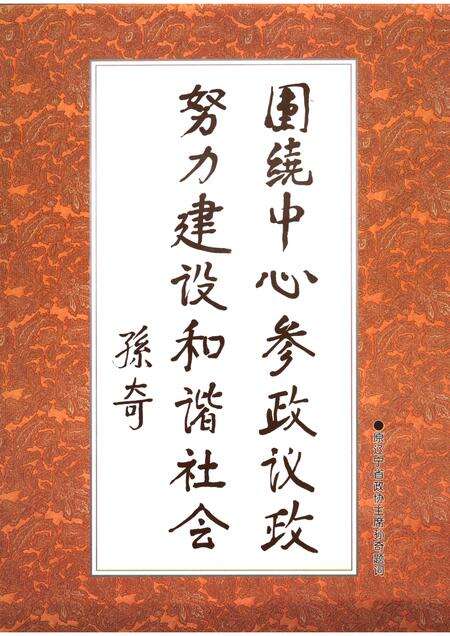 圍繞中心参政议政
努力建设和谐社会
孫奇
●原辽宁省政协主席孙奇题词